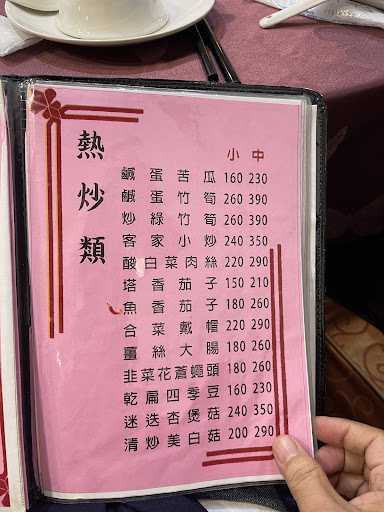 熱炒類
小 中
鹹蛋苦瓜 160 230
鹹蛋竹筍 260 390
炒綠竹筍 260 390
客家小炒 240 350
酸白菜肉絲 220 290
塔香茄子 150 210
魚香茄子 180 260
合菜戴帽 220 290
薑絲大腸 180 260
韭菜花蒼蠅頭 180 260
乾扁四季豆 160 230
迷迭杏煲菇 240 350
清炒美白菇 200 290